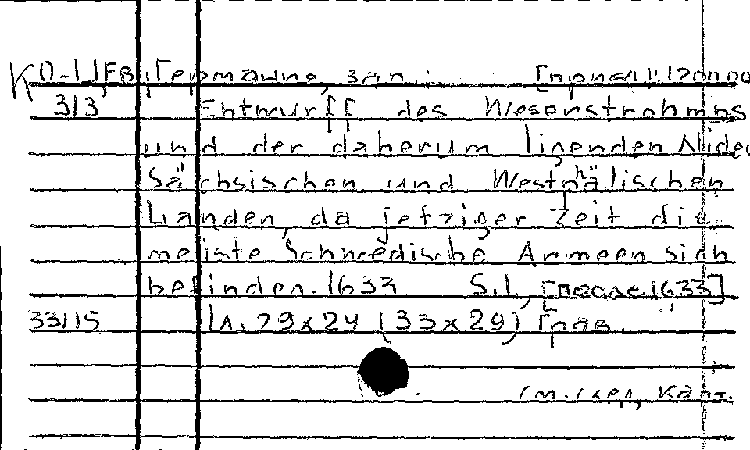 Германия, зап.
3/3 Entwurff des Weserstrohms
und der daherum ligenden Nider
Sächsischen und Westphälischen
Landen, da jetziger Zeit die
meiste Schwedische Armeen sich
befinden. 1633 S.l., [после 1633]
33115 1 л. 29x24 (33x29) Грав.
см. след. карт.